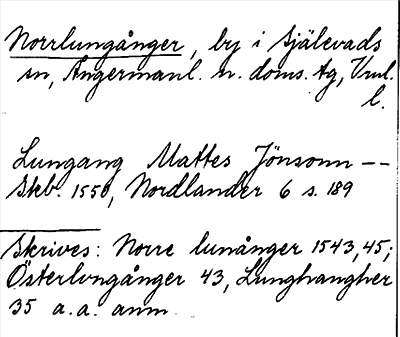 Norrlungånger, by i Själevads
sn, Ångermanl. n. doms. tg, Vnul.
l.
Lungang Mattes Jönsonn --
Skb. 1550, Nordlander 6 s. 189
Skrives: Norre lunånger 1543, 45;
Österlvngånger 43, Lunghangher
35 a.a. anm.